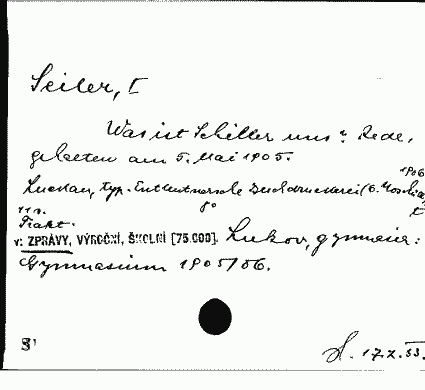 Seiler, I
Was ist Schiller uns? Rede,
gehalten am 5. Mai 1905.
1906
Luckau, typ. Entleutnersche Buchdruckerei
8°
11 s.
Trakt.
v: ZPRÁVY, VÝROČNÍ, ŠKOLNÍ [75.000]. Lukov, gymnasia:
Gymnasium 1905/06.
17.X.53.